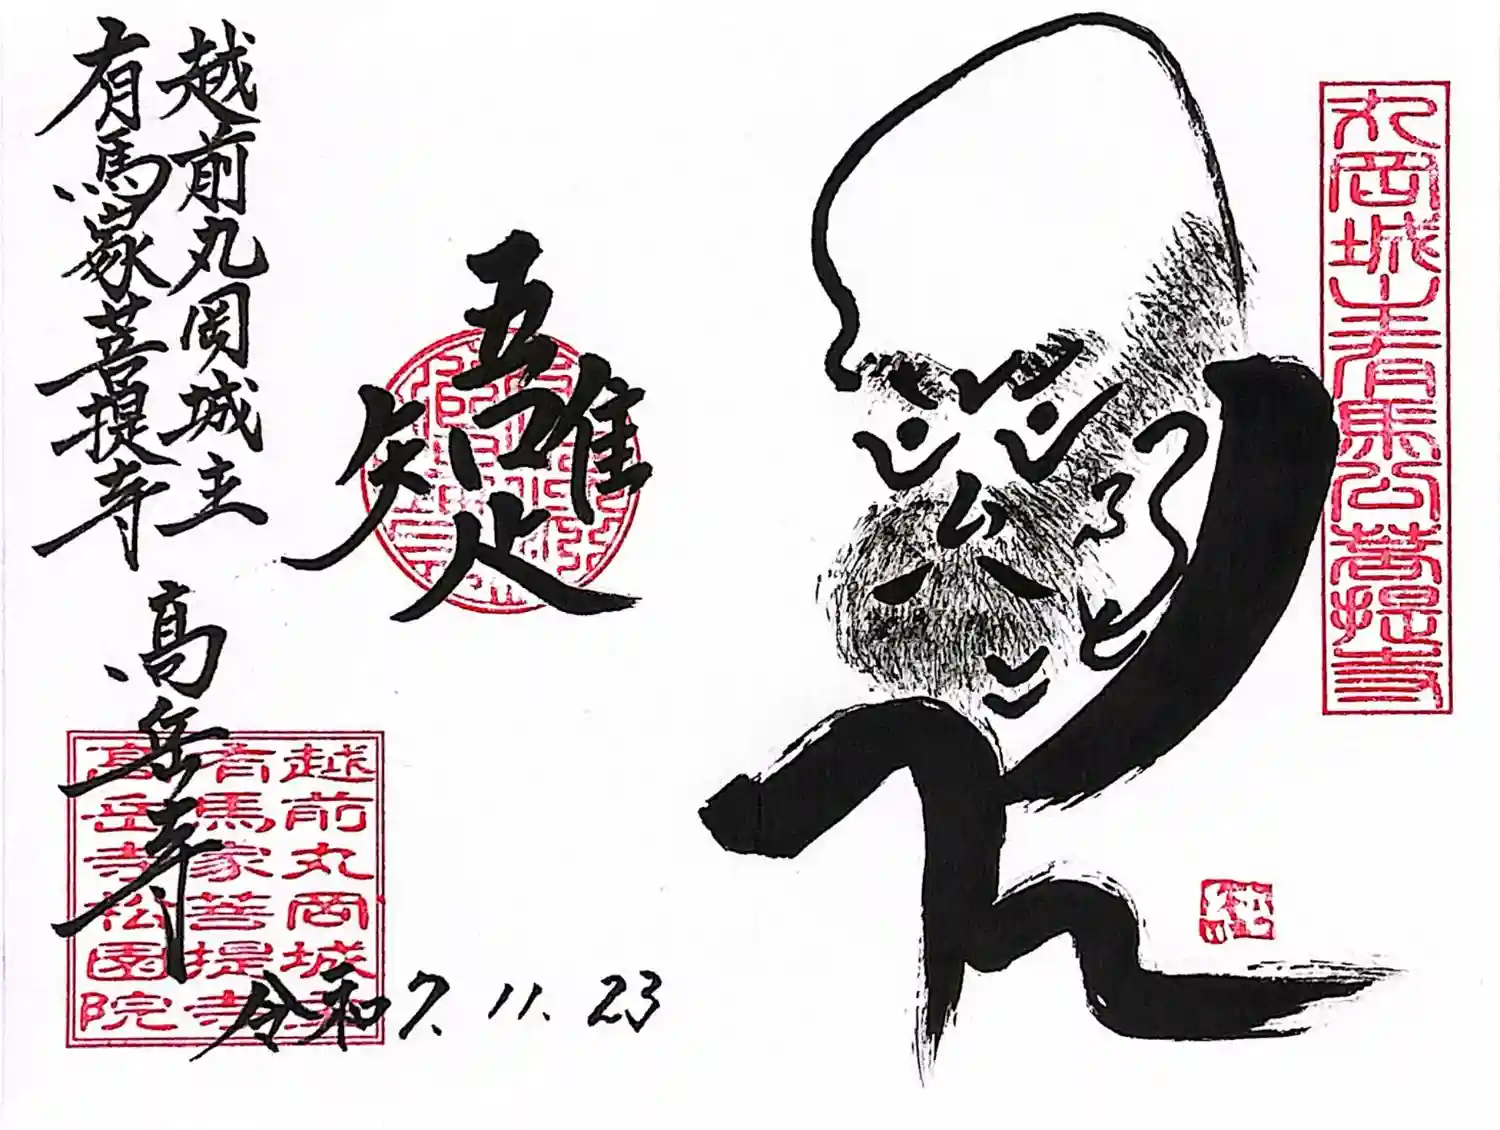 丸岡城主有馬公菩提寺
純
五
隹
疋
矢
口
越前丸岡城主
有馬家菩提寺
高岳寺
越前丸岡城主
有馬家菩提寺
高岳寺松園院
令和7.11.23